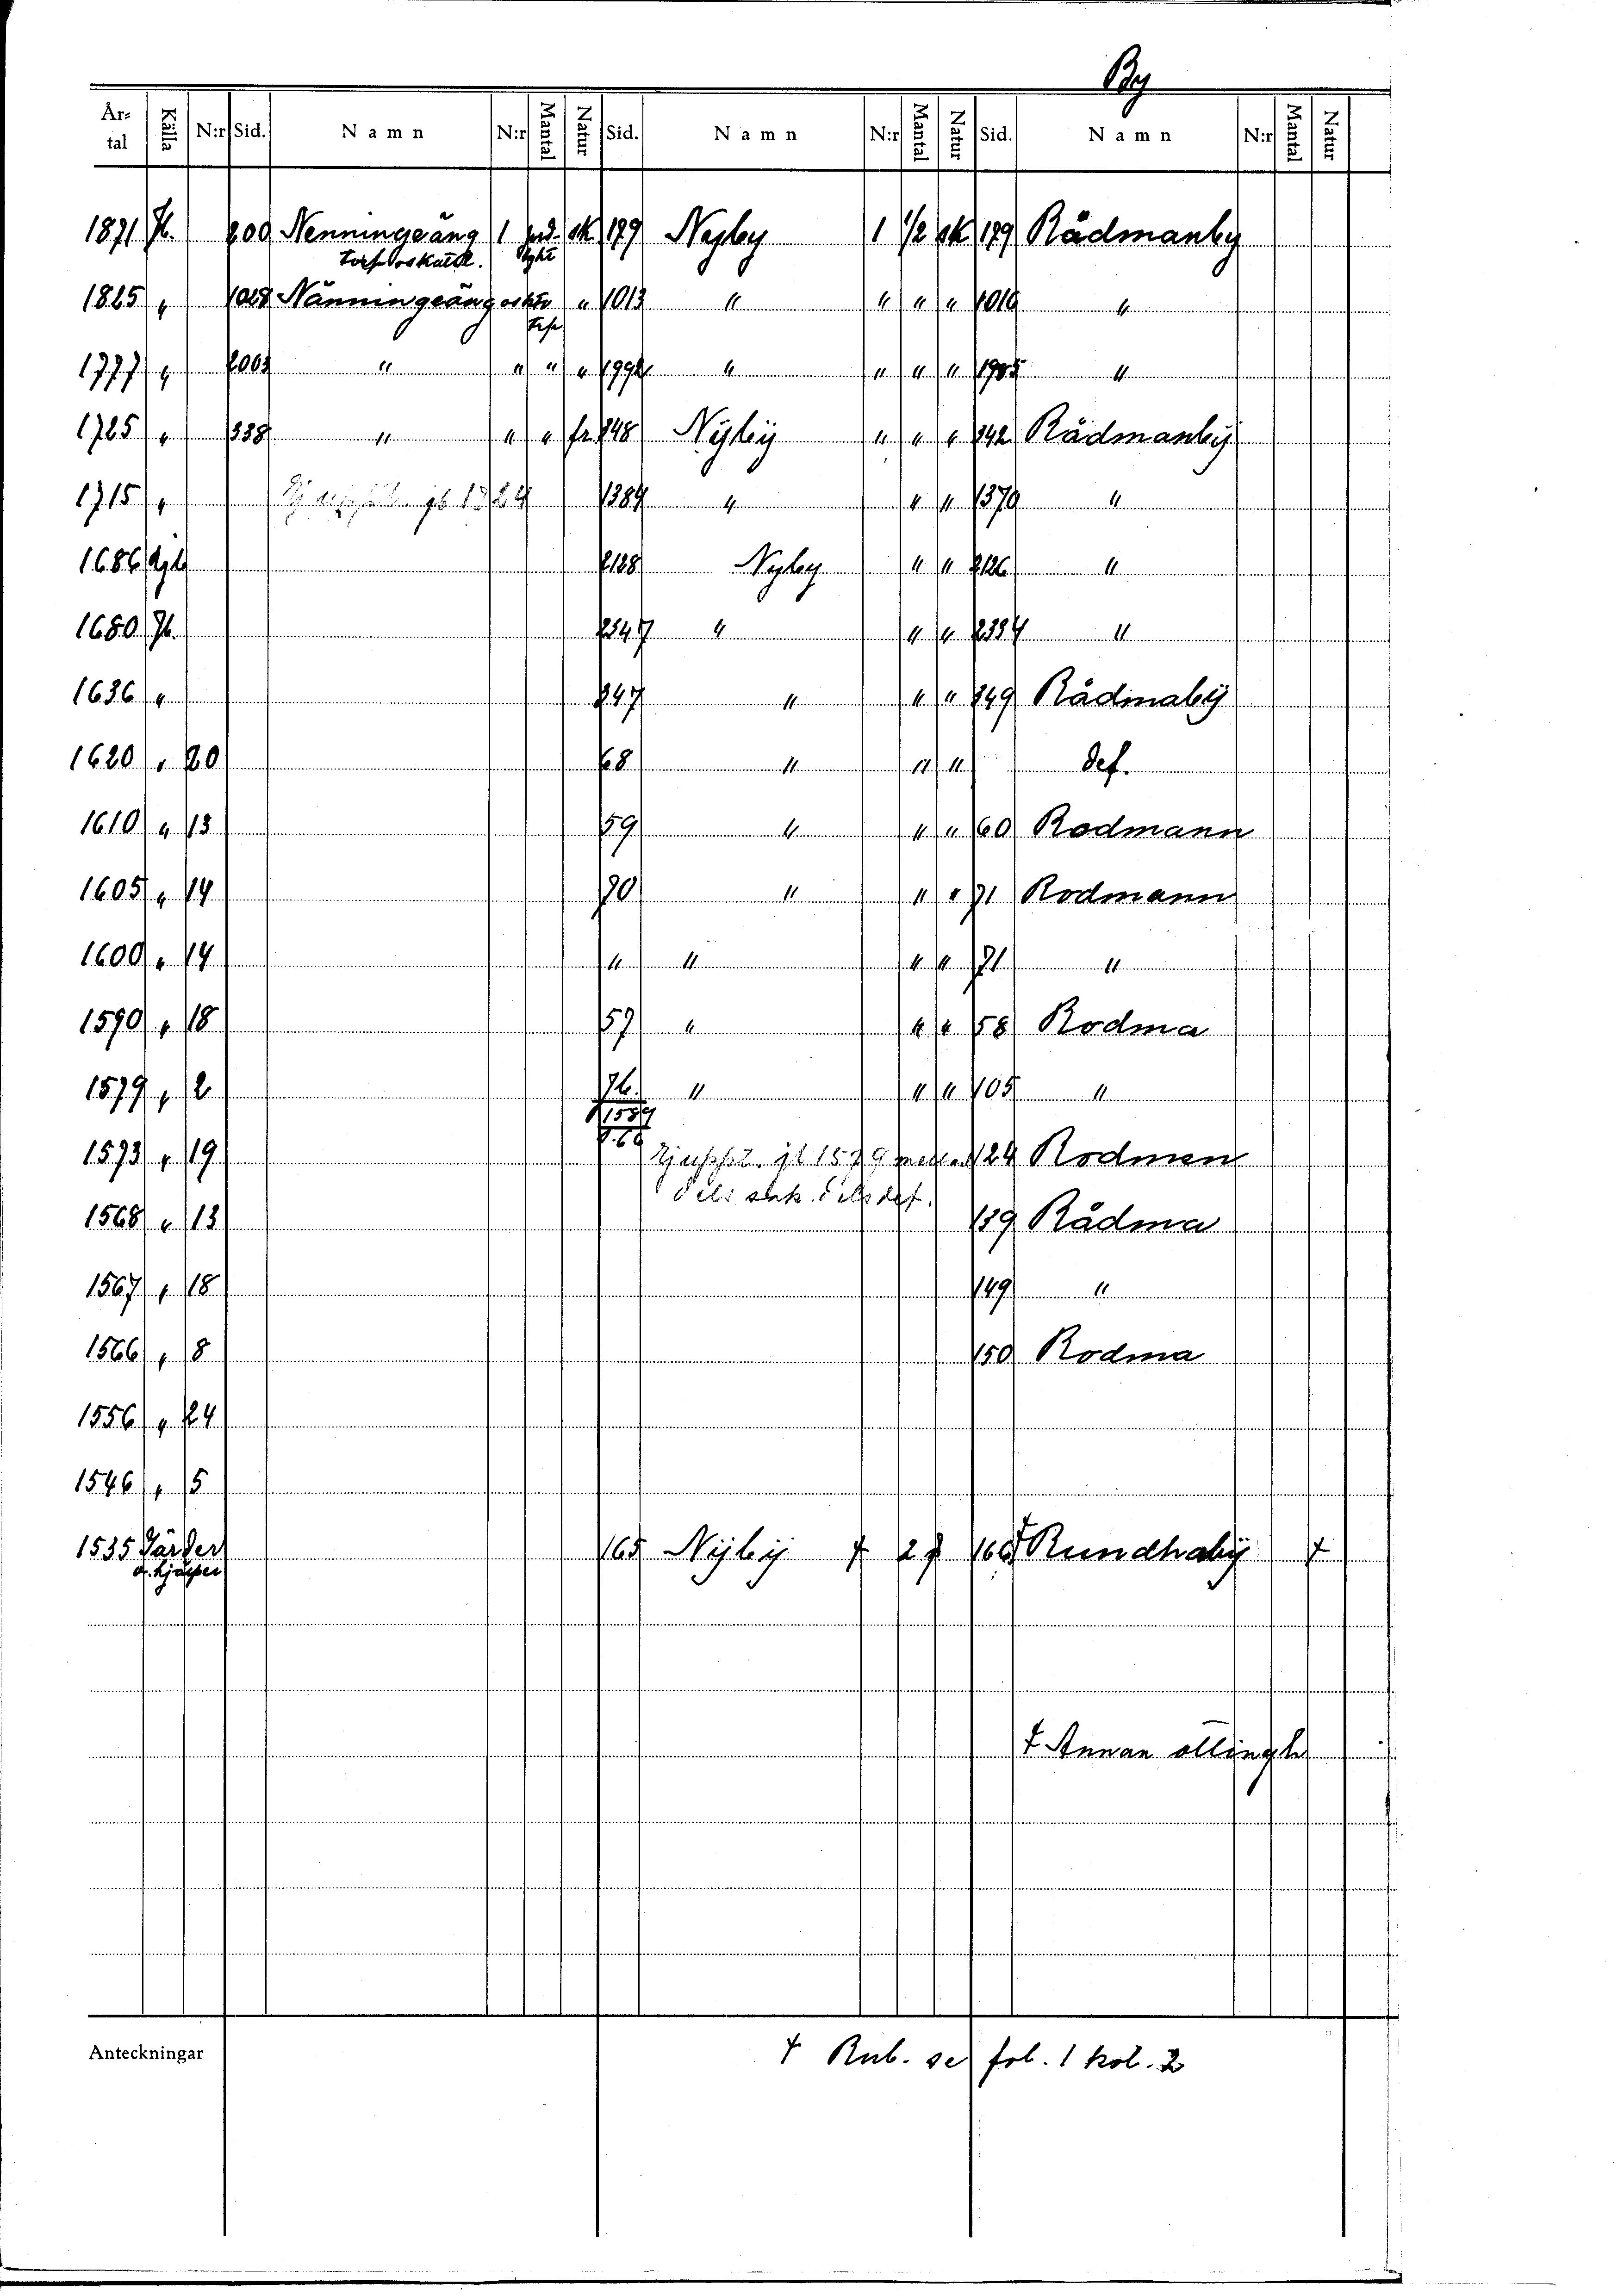 By
Årtal Källa N:r Sid. Namn N:r Mantal Natur Sid. Namn N:r Mantal Natur Sid. Namn N:r Mantal Natur
1871 Jb. 200 Nenningeäng 1 sk 179 Nyby 1 1/2 sk 179 Rådmanby
torp oskattl.
1825 " 1028 Nänningeäng " 1013 " " " " 1016 "
1777 " 2003 " " " " 1992 " " " " 1985 "
1725 " 338 " " " fr. 348 Nÿbÿ " " " 342 Rådmanbÿ
1715 " 1384 " " " 1370 "
1686 2128 Nyby " " 2126 "
1680 Jb. 2347 " " " 2334 "
1636 " 347 " " " 349 Rådmabÿ
1620 " 20 68 " " " def.
1610 " 13 59 " " " 60 Rodmann
1605 " 14 70 " " " 71 Rodmann
1600 " 14 " " " " 71 "
1590 " 18 57 " " " 58 Rodma
1579 " 2 76 " " " 105 "
1573 " 19 124 Rodmen
1568 " 13 139 Rådma
1567 " 18 149 "
1566 " 8 150 Rodma
1556 " 24
1546 " 5
1535 Gärder 165 Nÿbÿ 166 Rundhabÿ
Annan ottingh
Anteckningar
Rub. se fol. 1 kol. 2